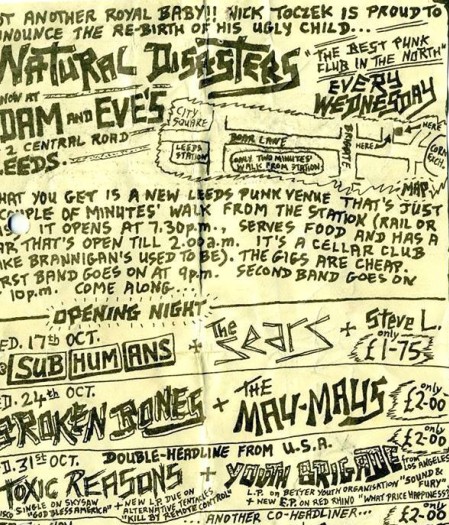 ST ANOTHER ROYAL BABY!! NICK TOCZEK IS PROUD TO
NOUNCE THE RE-BIRTH OF HIS UGLY CHILD...
NATURAL DISASTERS
"THE BEST PUNK
CLUB IN THE NORTH"
EVERY
WEDNESDAY
NOW AT
DAM AND EVE'S
2 CENTRAL ROAD
LEEDS.
CITY
SQUARE
LEEDS
STATION
BOAR LANE
ONLY TWO MINUTES'
WALK FROM STATION
BRIGGATE
HERE
HERE
CORN
EXCH.
MAP
HAT YOU GET IS A NEW LEEDS PUNK VENUE THAT'S JUST
COUPLE OF MINUTES' WALK FROM THE STATION (RAIL OR
IT OPENS AT 7.30p.m., SERVES FOOD AND HAS A
AR THAT'S OPEN TILL 2.00a.m. IT'S A CELLAR CLUB
IKE BRANNIGAN'S USED TO BE). THE GIGS ARE CHEAP.
RST BAND GOES ON AT 9p.m. SECOND BAND GOES ON
10p.m. COME ALONG...
OPENING NIGHT
ED. 17TH OCT.
SUBHUMANS + The SEARS + Steve L.
only
£1-75
D. 24TH OCT.
BROKEN BONES + THE MAU-MAUS
only
£2-00
D. 31ST OCT. DOUBLE-HEADLINE FROM U.S.A.
only
£2-00
TOXIC REASONS + YOUTH BRIGADE from LOS ANGELES
SINGLE ON SKYSAW
"GOD BLESS AMERICA"
+ NEW L.P. DUE ON
ALTERNATIVE TENTACLES
"KILL BY REMOTE CONTROL"
L.P. ON BETTER YOUTH ORGANISATION "SOUND &
FURY"
+ NEW E.P. ON RED RHINO "WHAT PRICE HAPPINESS?"
... ANOTHER CO-HEADLINER...
only
£2-00